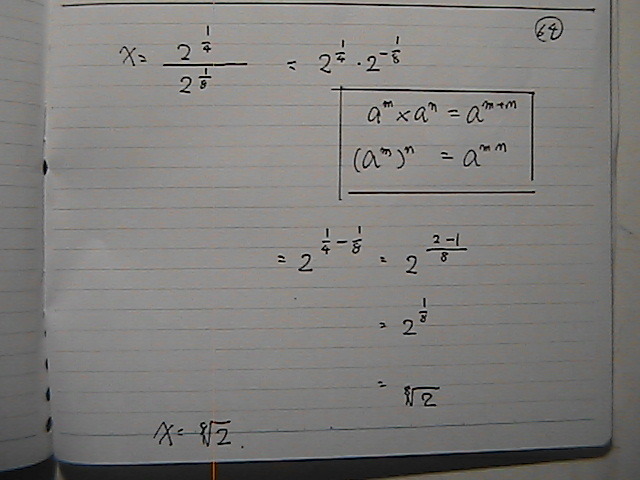 64
x = 2^{1/4} / 2^{1/8} = 2^{1/4} · 2^{-1/8}
a^m × a^n = a^{m+n}
(a^m)^n = a^{mn}
= 2^{1/4 - 1/8} = 2^{(2-1)/8}
= 2^{1/8}
= ⁸√2
x = ⁸√2.